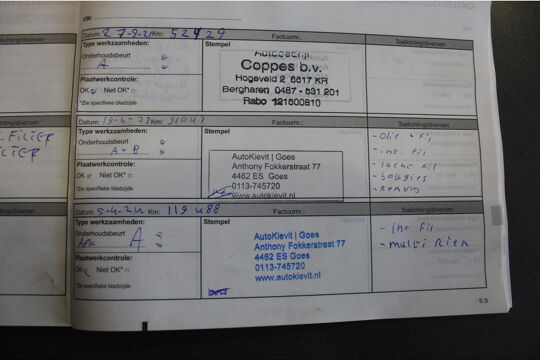 VIN:
Datum: 27-9-21 Km: 52429 Factuurnr.: Toelichting/diversen
Type werkzaamheden: Stempel
Onderhoudsbeurt
A
Plaatwerkcontrole:
OK Niet OK*
*Zie specifieke bladzijde
Autobedrijf
Coppes b.v.
Hogeveld 2 6617 KR
Bergharen 0487 - 531 201
Rabo 121500810
Datum: 19-4-23 Km: Factuurnr.: Toelichting/diversen
Type werkzaamheden: Stempel
Onderhoudsbeurt
A + B
Plaatwerkcontrole:
OK Niet OK*
*Zie specifieke bladzijde
AutoKievit | Goes
Anthony Fokkerstraat 77
4462 ES Goes
0113-745720
www.autokievit.nl
- olie + fil
- int. fil
- lucht fil
- bougies
FILTER
Datum: 5-4-24 Km: 119488 Factuurnr.: Toelichting/diversen
Type werkzaamheden: Stempel
Onderhoudsbeurt
APK A
Plaatwerkcontrole:
OK Niet OK*
*Zie specifieke bladzijde
AutoKievit | Goes
Anthony Fokkerstraat 77
4462 ES Goes
0113-745720
www.autokievit.nl
- int fil
- multi Riem
6.9